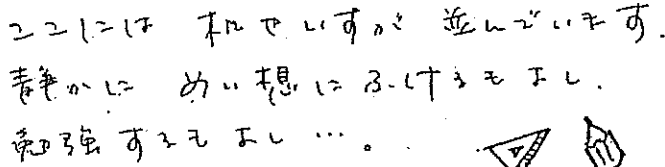 ここには 机やいすが 並んでいます.
静かに めい想に ふけるもよし.
勉強するもよし…。